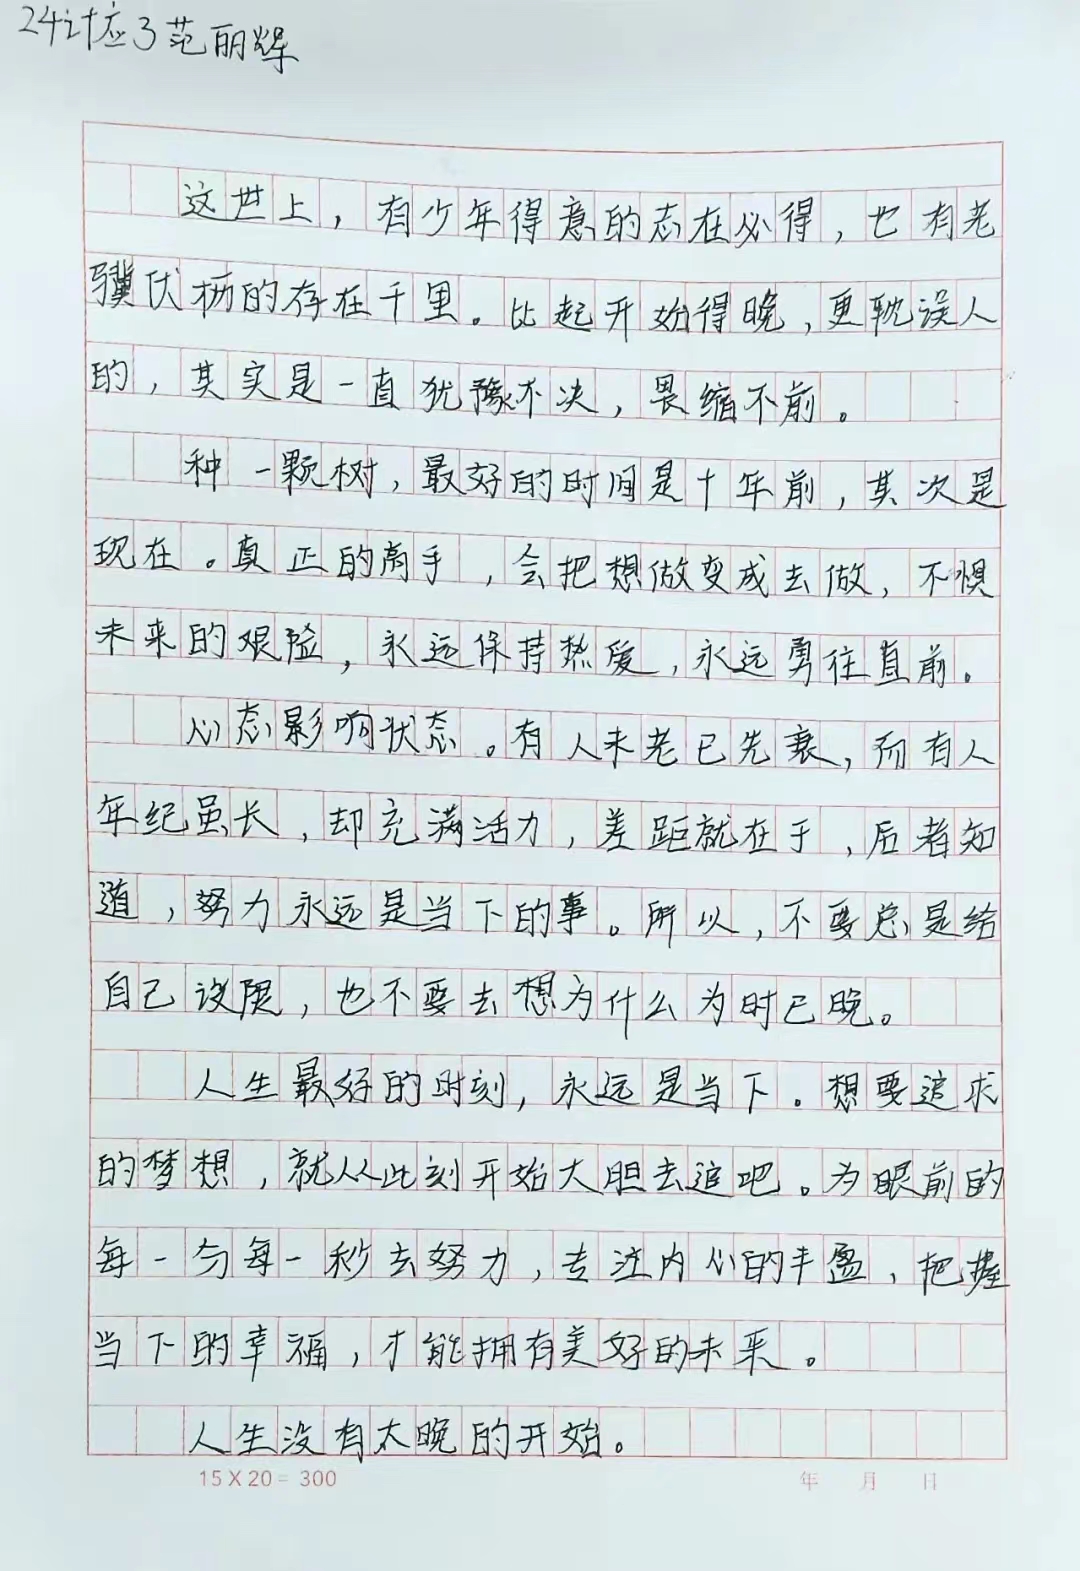 24计应3范丽辉
这世上，有少年得意的志在必得，也有老
骥伏枥的存在千里。比起开始得晚，更耽误人
的，其实是一直犹豫不决，畏缩不前。
种一颗树，最好的时间是十年前，其次是
现在。真正的高手，会把想做变成去做，不惧
未来的艰险，永远保持热爱，永远勇往直前。
心态影响状态。有人未老已先衰，而有人
年纪虽长，却充满活力，差距就在于，后者知
道，努力永远是当下的事。所以，不要总是给
自己设限，也不要去想为什么为时已晚。
人生最好的时刻，永远是当下。想要追求
的梦想，就从此刻开始大胆去追吧。为眼前的
每一分每一秒去努力，专注内心的丰盈，把握
当下的幸福，才能拥有美好的未来。
人生没有太晚的开始。
15×20=300
年 月 日